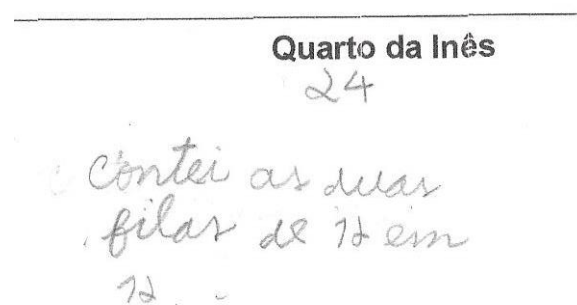 Quarto da Inês
24
contei as duas
filas de 12 em
12.